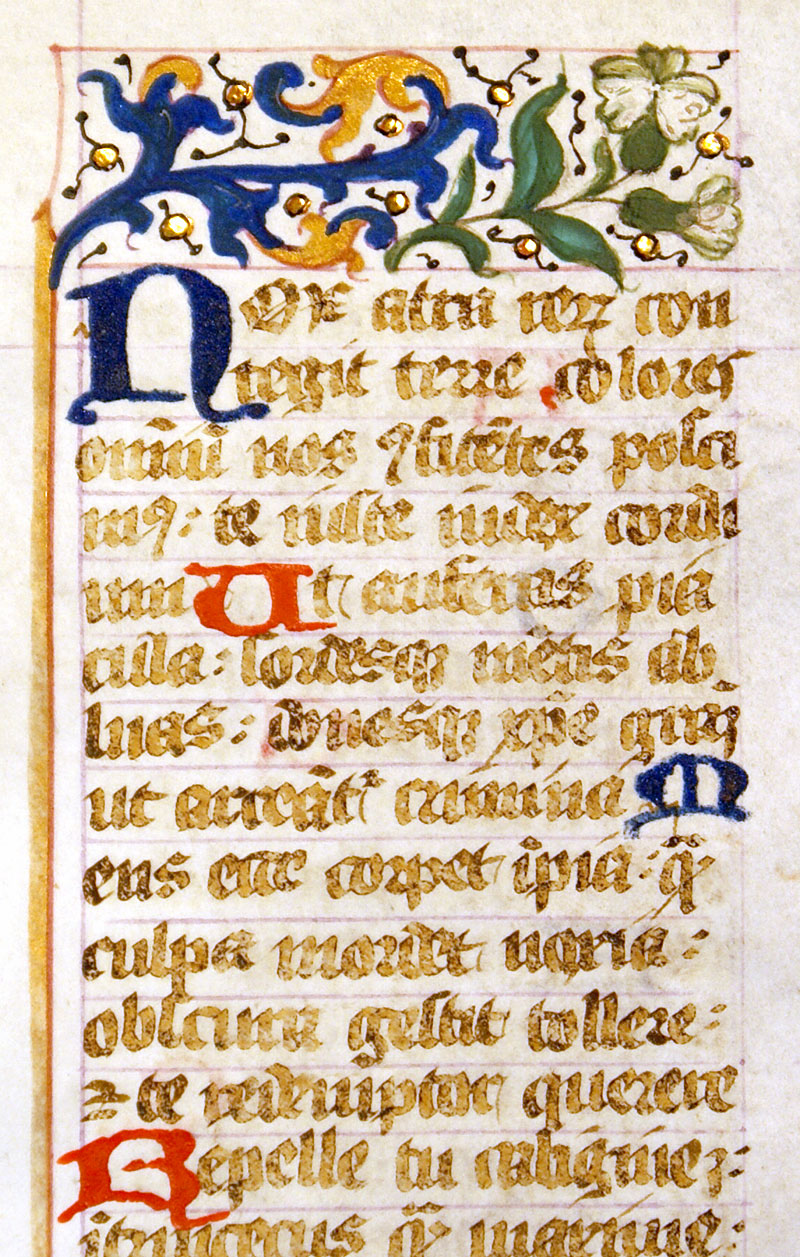 Nox atra reꝝ con
tegit terre colores
omniū nos ꝯfitētes posci
mꝯ: te iuste iudex cordi
um Ut auferas pia
cula: sordesqꝫ mētis ab
luas: donesqꝫ xp̄e graꝫ
ut arceāt᷑ crimina M
ens ecce torpet īpia: qᷓꝫ
culpa mordet noxia:
obscura gestit tollere:
⁊ te redemptor querere
Repelle tu caliginē:
ītrīsecus qᷓꝫ maxime: